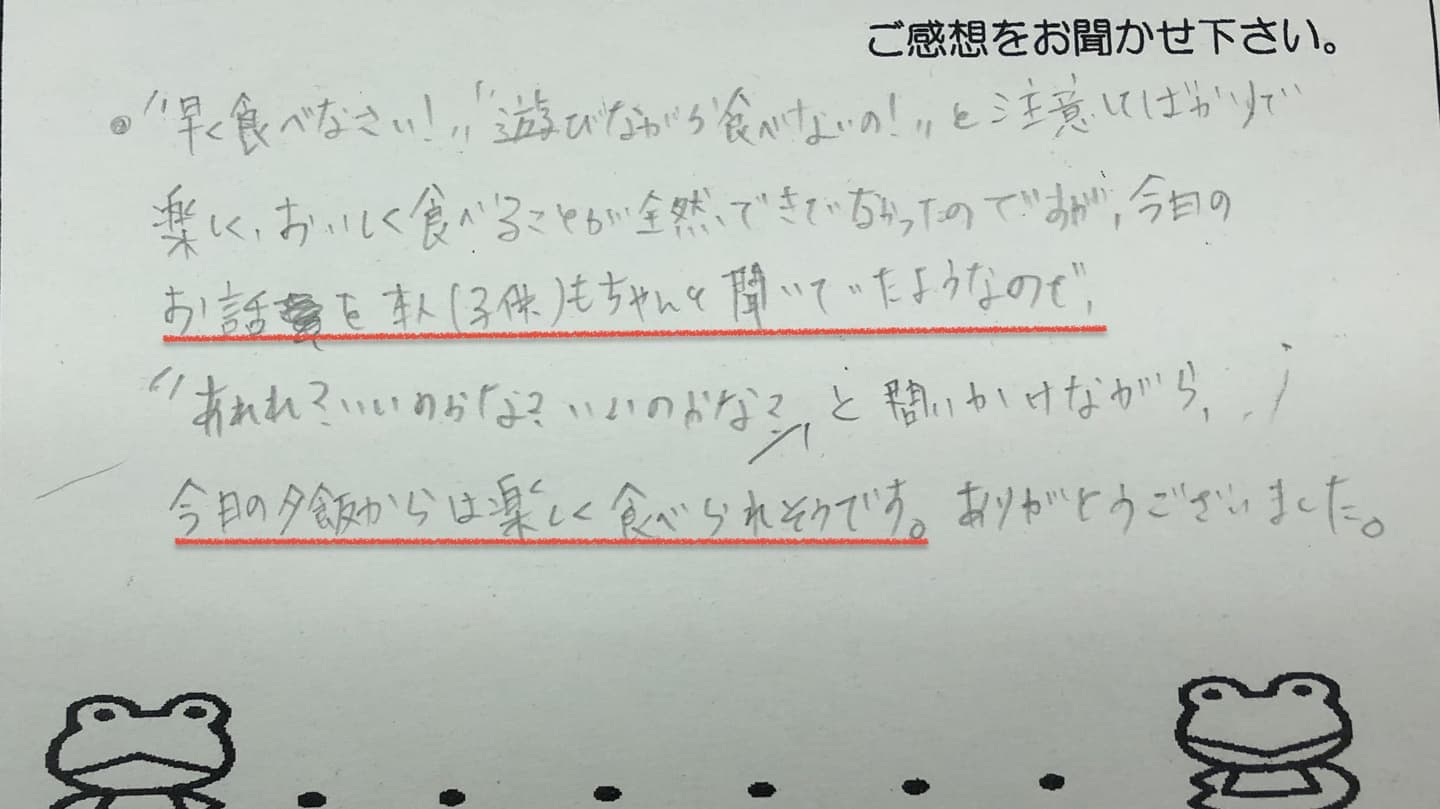 ご感想をお聞かせ下さい。
"早く食べなさい!""遊びながら食べないの!"と注意してばかりで
楽しく、おいしく食べることが全然、できでなかったのですが、今日の
お話を本人(子供)もちゃんと聞いていたようなので、
"あれれ?いいのかな?いいのかな?"と問いかけながら、
今日の夕飯からは楽しく食べられそうです。ありがとうございました。